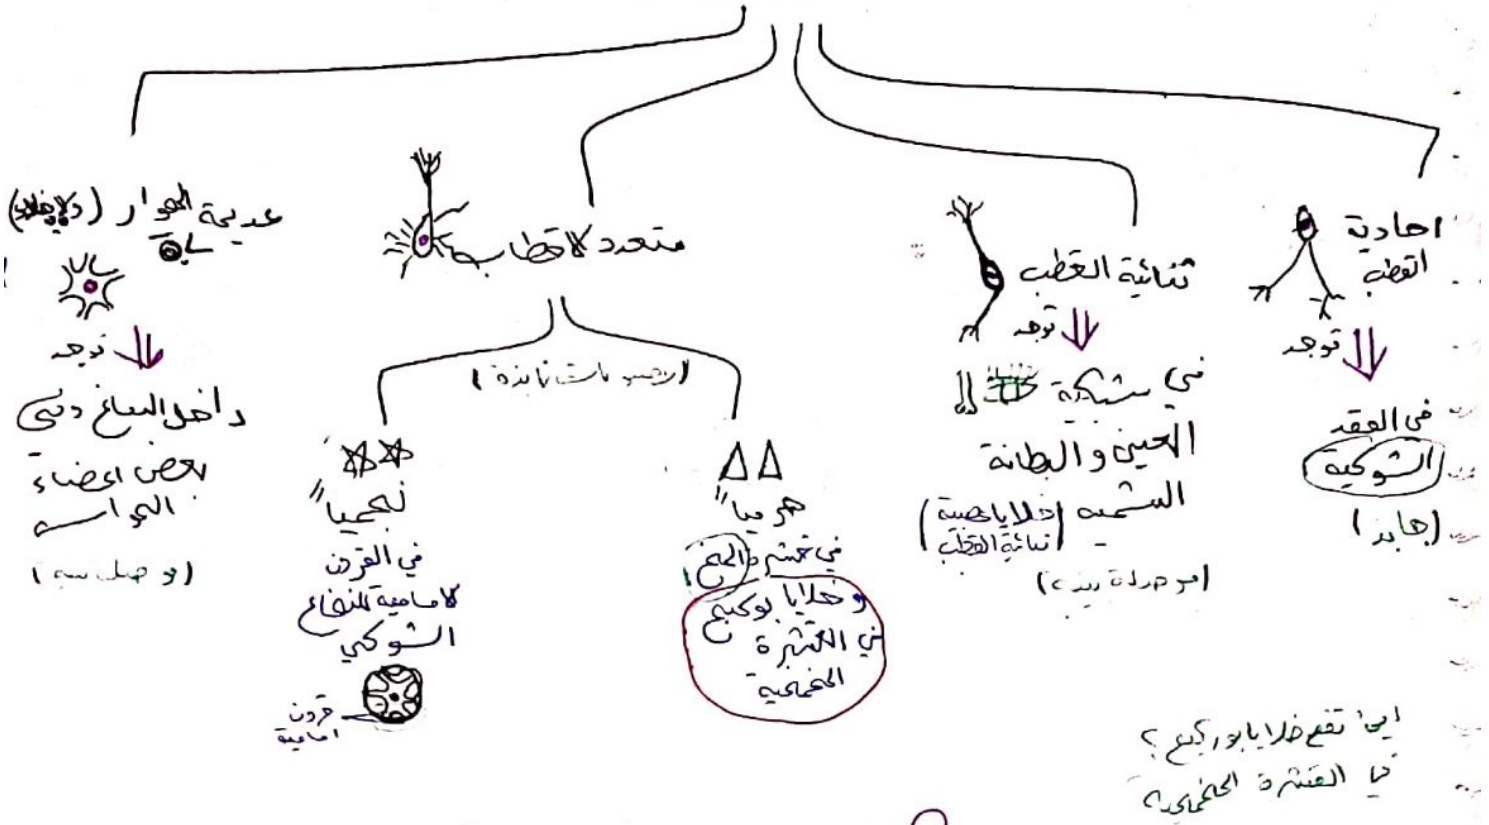 احادية
القطب
توجد
في العقد
الشوكية
(جابذ)
ثنائية القطب
توجد
في شبكة
العين والبطانة
الشمية
(خلايا عصبية
ثنائية القطب)
متعدد الاقطاب
هرمياً
في قشرة المخ
و خلايا بوركنج
في القشرة
المخيخية
نجمياً
في القرون
الامامية للنخاع
الشوكي
قرون
امامية
عديمة المحوار
توجد
داخل الدماغ وفي
بعض اعضاء
الحواس
اين تقع خلايا بوركنج ؟
في القشرة المخيخية